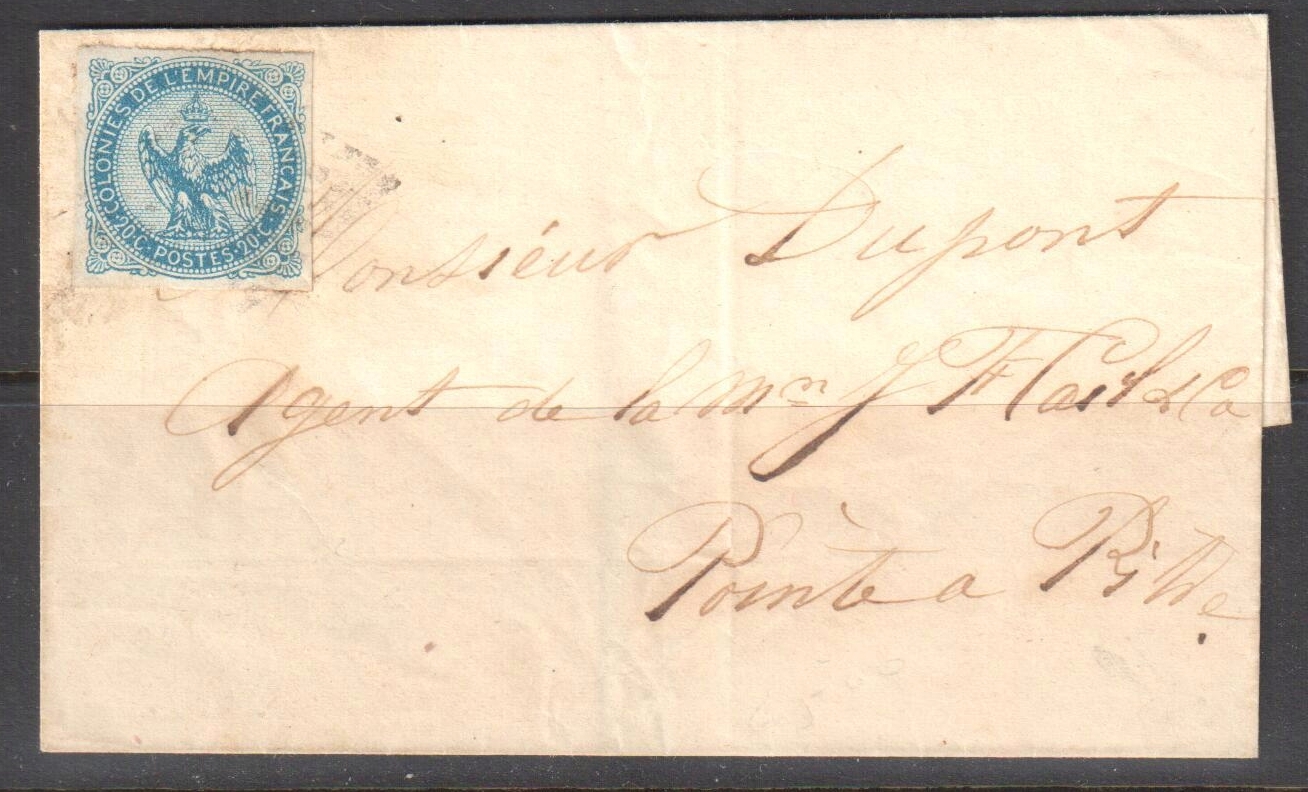 COLONIES DE L'EMPIRE FRANÇAIS
20 C. POSTES. 20 C.
Monsieur Dupont
Agent de la Mon J
Pointe a Pitre